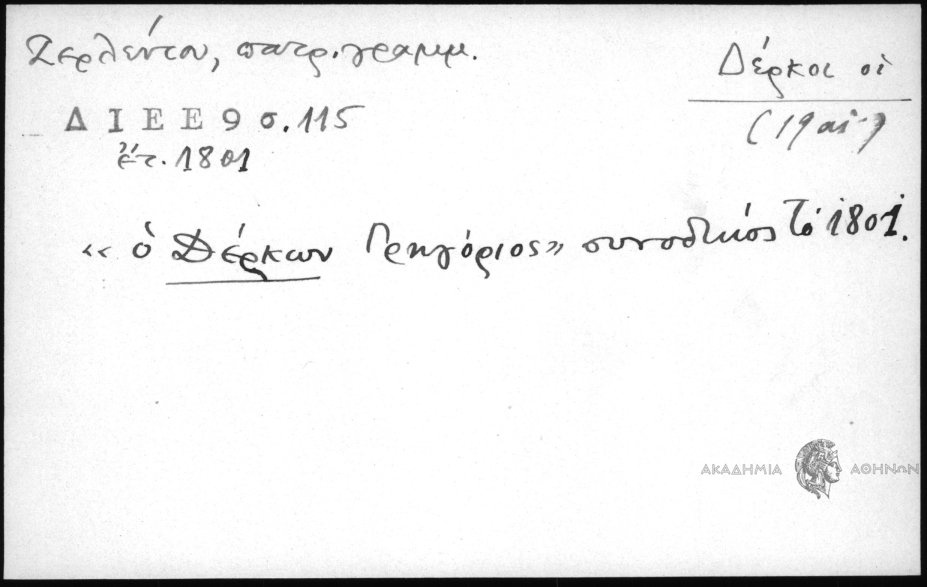 Ζερλέντου, πατρ. γραμμ.
Δέρκοι οἱ
(19 αἰ.)
Δ Ι Ε Ε 9 σ. 115
ἔτ. 1801
« ὁ Δέρκων Γρηγόριος» συνοδικός τὸ 1801.
ΑΚΑΔΗΜΙΑ ΑΘΗΝΩΝ